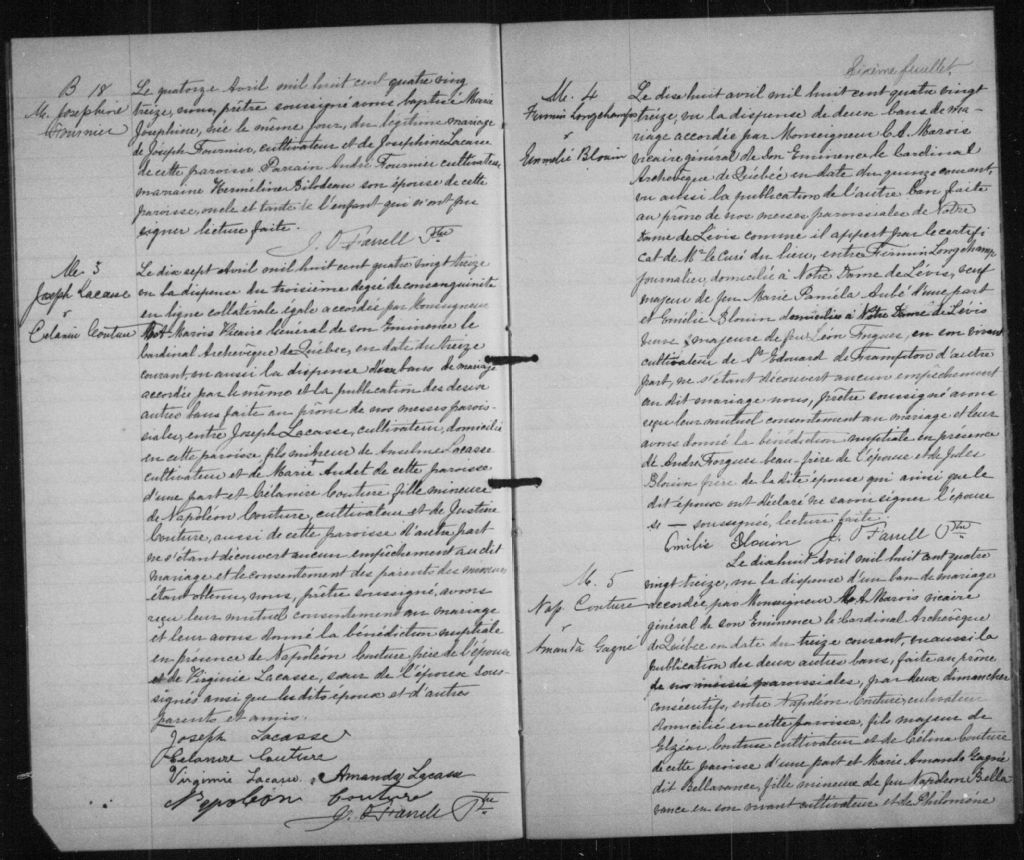 B 18
M. Josephine
Fournier
Le quatorze Avril mil huit cent quatre ving
treize, nous, prêtre soussigné avons baptisé Marie
Josephine, née le même jour, du légitime mariage
de Joseph Fournier, cultivateur et de Josephine Lacasse
de cette paroisse Parrain André Fournier cultivateur
marraine Hermeline Bilodeau son épouse de cette
paroisse, oncle et tante de l'enfant qui n'ont pu
signer lecture faite.
J. O Farrell Ptre
M. 3
Joseph Lacasse
&
Célanise Couture
Le dix sept Avril mil huit cent quatre vingt treize
vu la dispense du troisième degré de consanguinité
en ligne collatérale égale accordée par Monseigneur
Marois Vicaire Général de son Eminence le
Cardinal Archevêque de Québec, en date du treize
courant, vu aussi la dispense d'un bans de mariage
accordée par le même et la publication des deux
autres bans faite au prône de nos messes parois-
siales, entre Joseph Lacasse, cultivateur, domicilié
en cette paroisse, fils mineur de Anselme Lacasse
cultivateur et de Marie Audet de cette paroisse
d'une part et Célanise Couture fille mineure
de Napoléon Couture, cultivateur et de Justine
Couture, aussi de cette paroisse d'autre part
ne s'étant découvert aucun empêchement au dit
mariage et le consentement des parents des mineurs
étant obtenu, nous, prêtre soussigné, avons
reçu leur mutuel consentement au mariage
et leur avons donné la bénédiction nuptiale
en présence de Napoléon Couture père de l'épouse
et de Virginie Lacasse, sœur de l'époux sous-
signés ainsi que les dits époux et d'autres
parents et amis.
Joseph Lacasse
Celanire Couture
Virginie Lacasse, Amanda Lacasse
Napoléon Couture
J. O Farrell Ptre
Sixième feuillet.
M. 4
Firmin Longchamps
&
Emmélie Blouin
Le dix huit avril mil huit cent quatre vingt
treize, vu la dispense de deux bans de ma-
riage accordée par Monseigneur C. A. Marois
vicaire général de Son Eminence le Cardinal
Archevêque de Québec en date du quinze courant,
vu aussi la publication de l'autre ban faite
au prône de nos messes paroissiales de Notre
Dame de Lévis comme il appert par le certifi
cat de Mr le Curé du lieu, entre Firmin Longchamp
journalier, domicilié à Notre Dame de Lévis, veuf
majeur de feu Marie Paméla Aubé d'une part
et Emilie Blouin domiciliée à Notre Dame de Lévis
veuve majeure de feu Léon Forgues, en son vivant
cultivateur de St Edouard de Frampton d'autre
part, ne s'étant découvert aucun empêchement
au dit mariage nous, prêtre soussigné avons
reçu leur mutuel consentement au mariage et leur
avons donné la bénédiction nuptiale en présence
de André Forgues beau-frère de l'épouse et de Jules
Blouin frère de la dite épouse qui ainsi que le
dit époux ont déclaré ne savoir signer l'épouse
s'est soussignée, lecture faite.
Emilie Blouin J. O Farrell Ptre
M. 5
Nap Couture
&
Amanda Gagne
Le dix huit Avril mil huit cent quatre
vingt treize, vu la dispense d'un ban de mariage
accordée par Monseigneur C. A. Marois vicaire
général de son Eminence le Cardinal Archevêque
de Québec en date du treize courant, vu aussi la
publication des deux autres bans, faite au prône
de nos messes paroissiales, par deux dimanches
consécutifs, entre Napoléon Couture, cultivateur
domicilié en cette paroisse, fils majeur de
Elzéar Couture cultivateur et de Célina Couture
de cette paroisse d'une part et Marie Amanda Gagné
dit Bellavance, fille mineure de feu Napoleon Bella
vance en son vivant cultivateur et de Philomène